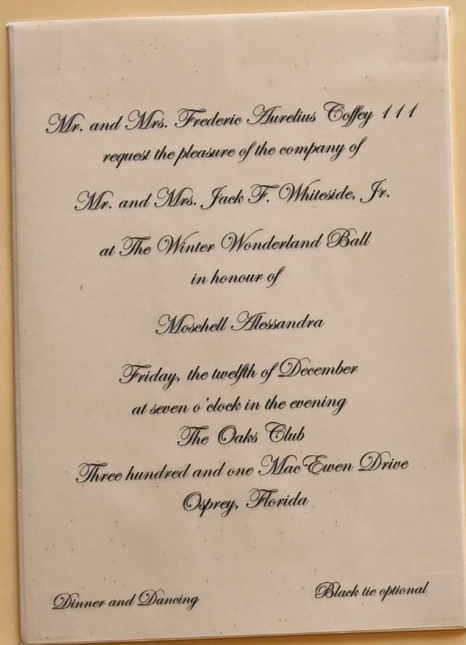 Mr. and Mrs. Frederic Aurelius Coffey 111
request the pleasure of the company of
Mr. and Mrs. Jack F. Whiteside, Jr.
at The Winter Wonderland Ball
in honour of
Moschell Alessandra
Friday, the twelfth of December
at seven o'clock in the evening
The Oaks Club
Three hundred and one Mac Ewen Drive
Osprey, Florida
Dinner and Dancing
Black tie optional